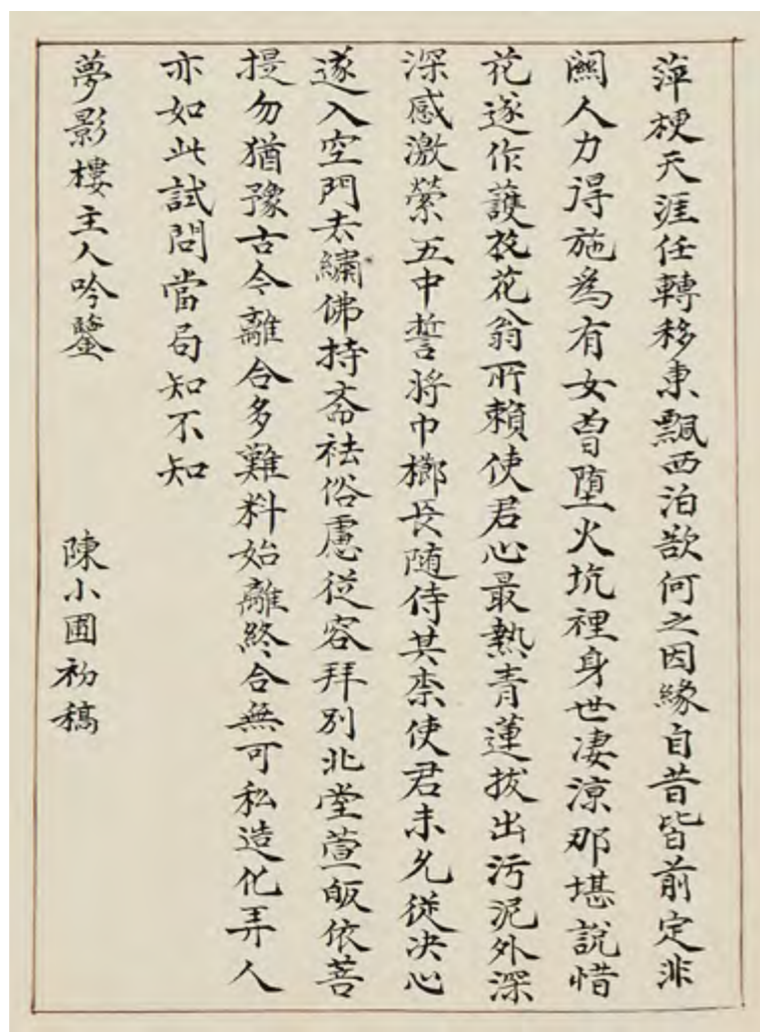 萍梗天涯任轉移東飄西泊欲何之因緣自昔皆前定非
關人力得施為有女曾墮火坑裡身世淒涼那堪說惜
花遂作護花翁所賴使君心最熱青蓮拔出污泥外深
深感激縈五中誓將巾櫛長隨侍其柰使君未允從決心
遂入空門去繡佛持齋袪俗慮從容拜別北堂萱皈依菩
提勿猶豫古今離合多難料始離終合無可私造化弄人
亦如此試問當局知不知
夢影樓主人吟鑒
陳小圃初稿